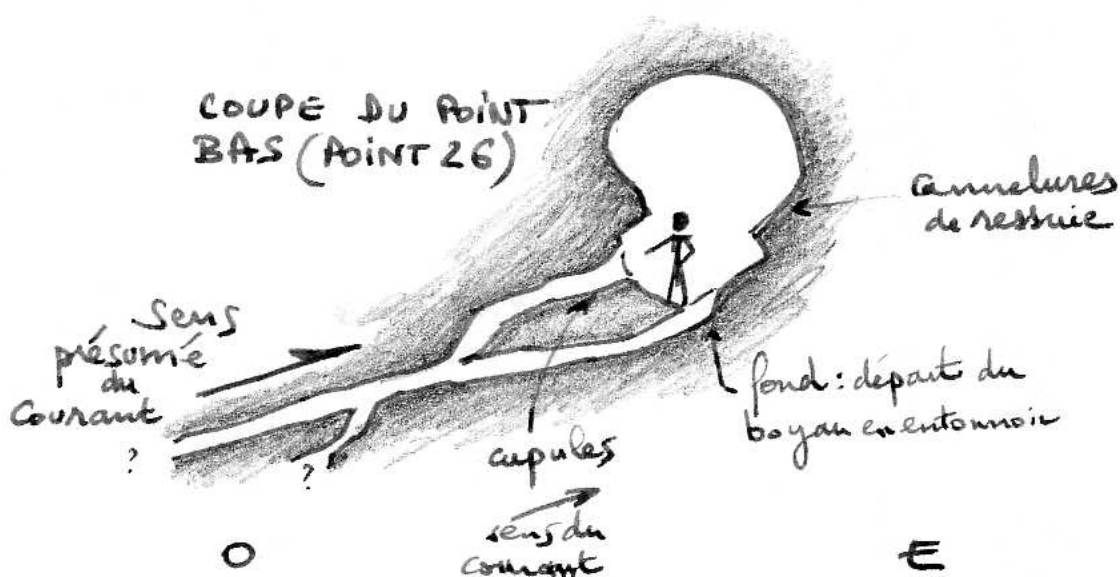 COUPE DU POINT
BAS (POINT 26)
cannelures
de ressuie
sens
présumé
du
courant
fond : départ du
boyau en entonnoir
?
?
cupules
sens du
courant
O
E